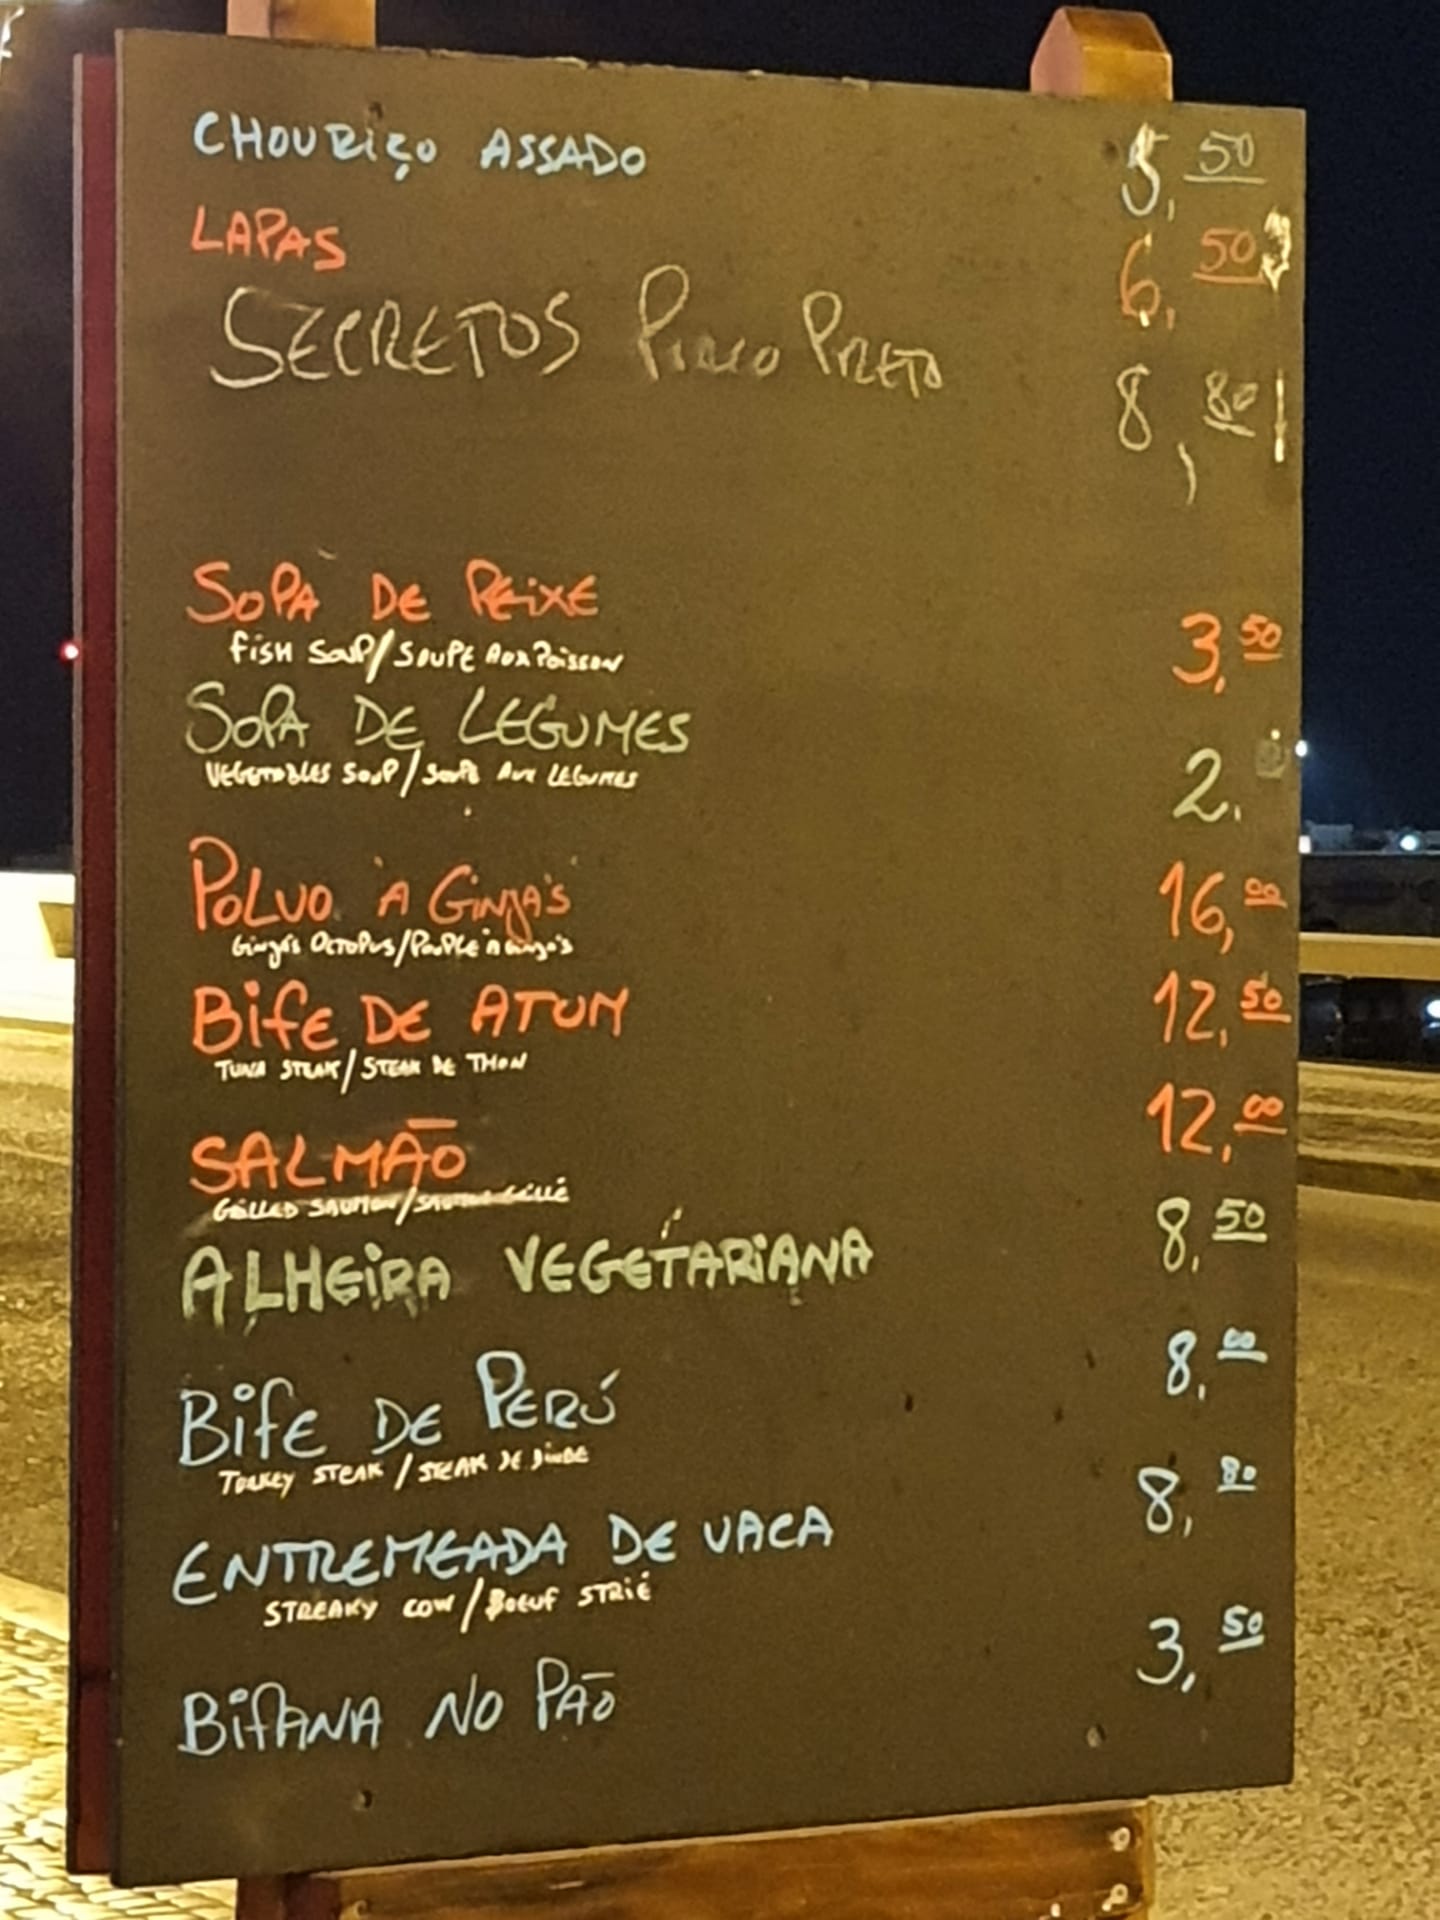 CHOURIÇO ASSADO 5,50
LAPAS 6,50
SECRETOS PORCO PRETO 8,80
SOPA DE PEIXE 3,50
FISH SOUP/SOUPE AUX POISSON
SOPA DE LEGUMES 2,
VEGETABLES SOUP/SOUPE AUX LEGUMES
POLVO À GINJA'S 16,00
GINJA'S OCTOPUS/POUPLE À GINJA'S
BIFE DE ATUM 12,50
TUNA STEAK/STEAK DE THON
SALMÃO 12,00
GRILLED SAUMON/SAUMON GRILLÉ
ALHEIRA VEGETARIANA 8,50
BIFE DE PERÚ 8,00
TURKEY STEAK/STEAK DE DINDE
ENTREMEADA DE VACA 8,80
STREAKY COW/BOEUF STRIÉ
BIFANA NO PÃO 3,50